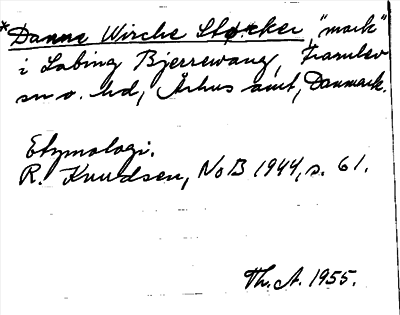 *Danne Wirche Støcker, "mark"
i Labing Bjerrewang, Framlev
sn o. hd, Århus amt, Danmark.
Etymologi.
R. Knudsen, NoB 1944, s. 61.
Th. A. 1955.